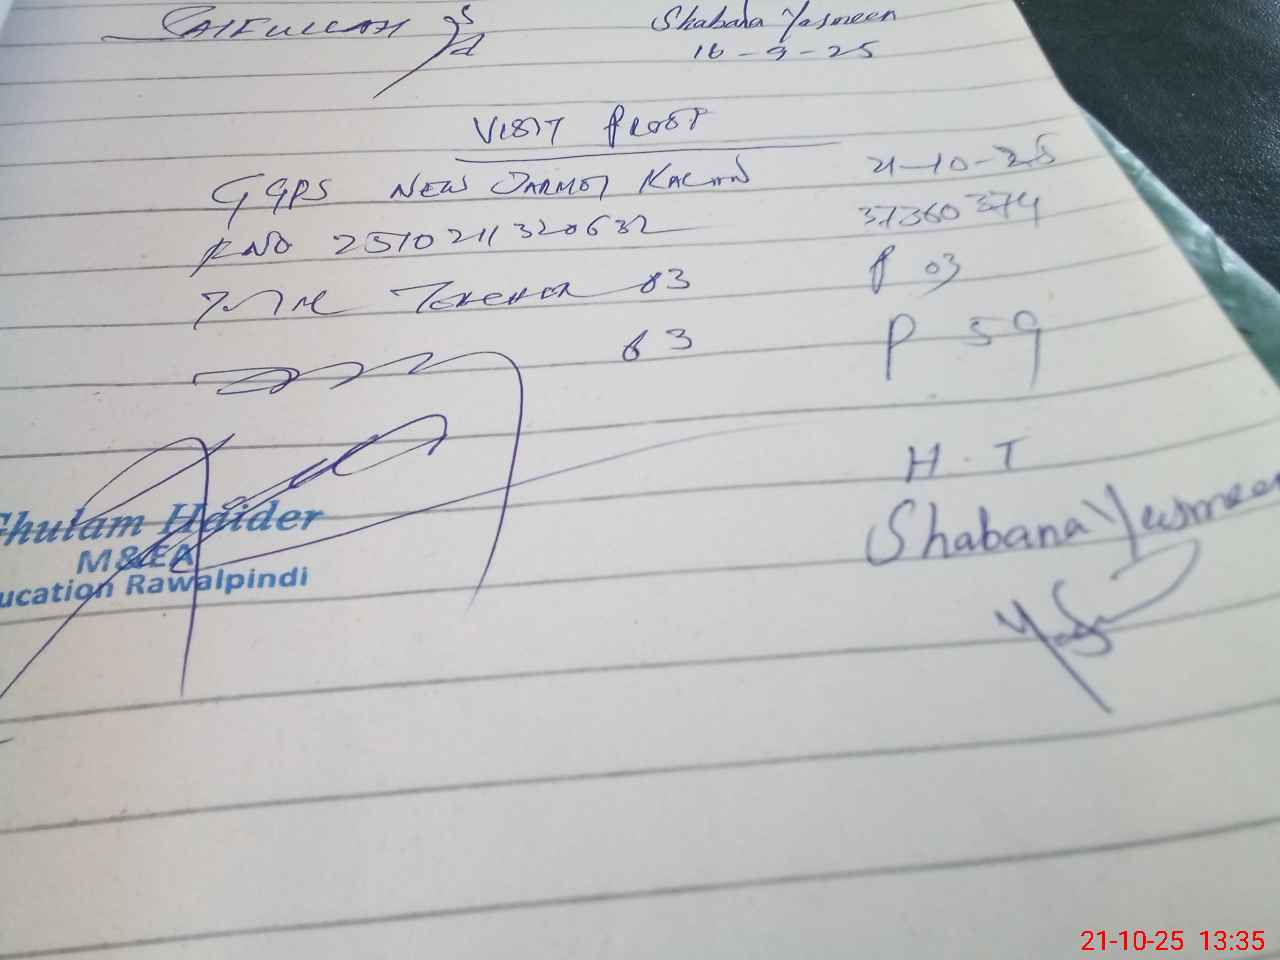 SAIFULLAH Shabana Yasmeen
16-9-25
VISIT PROOF
GGPS NEW DARMOT KALAN 21-10-25
R NO 2510211320632 37360374
Total Teacher 03 P 03
63 P 59
H.T
Ghulam Haider Shabana Yasmeen
M&EA
ucation Rawalpindi
21-10-25 13:35